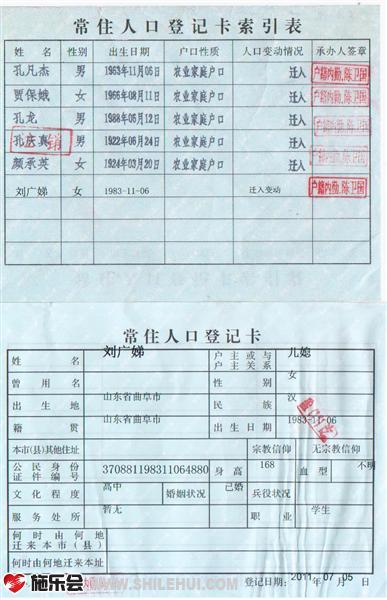 常住人口登记卡索引表
姓名 性别 出生日期 户口性质 人口变动情况 承办人签章
孔凡杰 男 1963年11月06日 农业家庭户口 迁入 户籍内勤:陈卫国
贾保娥 女 1966年08月11日 农业家庭户口 迁入
孔龙 男 1988年05月12日 农业家庭户口 迁入
孔庆真 男 1922年06月24日 农业家庭户口 迁入
销
颜承英 女 1924年03月20日 农业家庭户口 迁入
刘广娣 女 1983-11-06 迁入变动 户籍内勤:陈卫国
常住人口登记卡
姓名 刘广娣 户主或与户主关系 儿媳
曾用名 性别 女
出生地 山东省曲阜市 民族 汉
籍贯 山东省曲阜市 出生日期 1983-11-06
本市(县)其他住址 宗教信仰 无宗教信仰
公民身份证件编号 370881198311064880 身高 168 血型 不明
文化程度 高中 婚姻状况 已婚 兵役状况
服务处所 暂无 职业 学生
何时由何地迁来本市(县)
何时由何地迁来本址
登记日期: 2011年07月05日
施乐会 WWW.SHILEHUI.COM